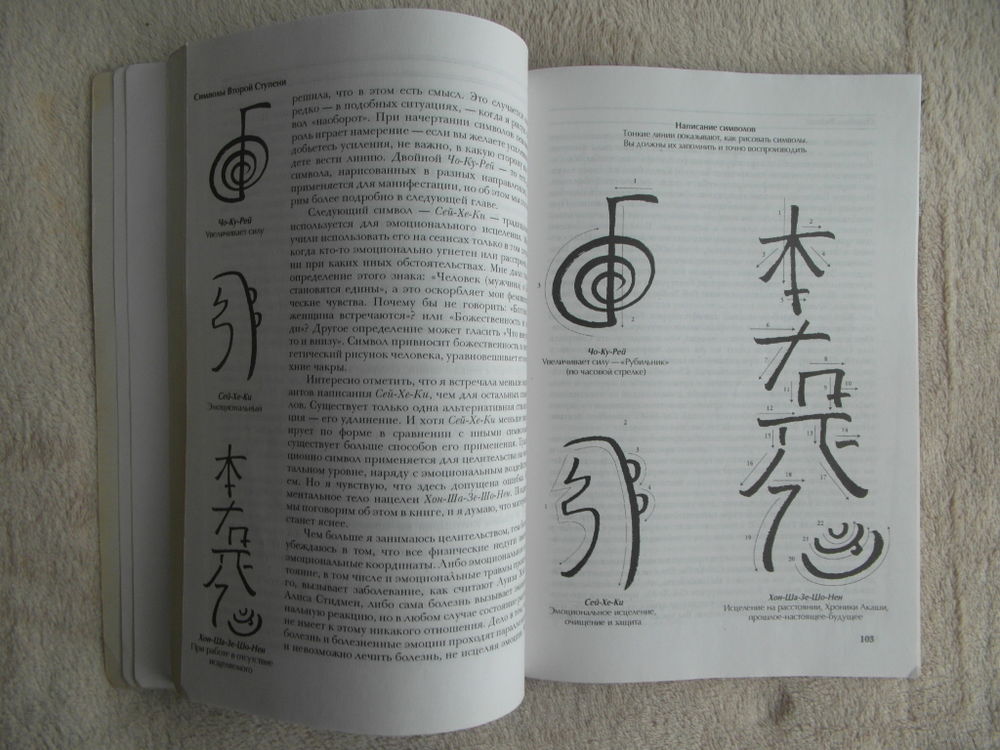 Символы Второй Ступени
Чо-Ку-Рей
Увеличивает силу
Сей-Хе-Ки
Эмоциональный
Хон-Ша-Зе-Шо-Нен
При работе в отсутствие
исцеляемого
решила, что в этом есть смысл. Это случается
редко — в подобных ситуациях, — когда я
вол «наоборот». При начертании символов
роль играет намерение — если вы желаете
добьетесь усиления, не важно, в какую сторону
дете вести линию. Двойной Чо-Ку-Рей — то
символа, нарисованных в разных
применяется для манифестации, но об этом мы
рим более подробно в следующей главе.
Следующий символ — Сей-Хе-Ки —
используется для эмоционального исцеления.
учили использовать его на сеансах только в том
когда кто-то эмоционально угнетен или
ни при каких иных обстоятельствах. Мне
определение этого знака: «Человек (мужчина) и
становятся едины», а это оскорбляет мои
ческие чувства. Почему бы не говорить:
женщина встречаются»? или «Божественность и
ди»? Другое определение может гласить «Что
то и внизу». Символ привносит божественность в
гетический рисунок человека, уравновешивает
хние чакры.
Интересно отметить, что я встречала меньше
антов написания Сей-Хе-Ки, чем для остальных
лов. Существует только одна альтернативная
ция — его удлинение. И хотя Сей-Хе-Ки меньше
ирует по форме в сравнении с иными
существует больше способов его применения.
ционно символ применяется для целительства на
тальном уровне, наряду с эмоциональным
ем. Но я чувствую, что здесь допущена ошибка.
ментальное тело нацелен Хон-Ша-Зе-Шо-Нен.
мы поговорим об этом в книге, и я думаю, что
станет яснее.
Чем больше я занимаюсь целительством, тем
убеждаюсь в том, что все физические недуги
эмоциональные координаты. Либо эмоциональное
тояние, в том числе и эмоциональные травмы
го, вызывает заболевание, как считают Луиза
Алиса Стидмен, либо сама болезнь вызывает
нальную реакцию, но в любом случае состояние
не имеет к этому никакого отношения. Дело в том,
болезнь и болезненные эмоции проходят
и невозможно лечить болезнь, не исцеляя эмоции
Написание символов
Тонкие линии показывают, как рисовать символы.
Вы должны их запомнить и точно воспроизводить
1
2
3
Чо-Ку-Рей
Увеличивает силу — «Рубильник»
(по часовой стрелке)
2
3
4
1
Сей-Хе-Ки
Эмоциональное исцеление,
очищение и защита
1
2
3
4
5
6
7
8
9
10
11
12
13
14
15
16
17
18
19
20
21
22
Хон-Ша-Зе-Шо-Нен
Исцеление на расстоянии, Хроники Акаши,
прошлое-настоящее-будущее
103